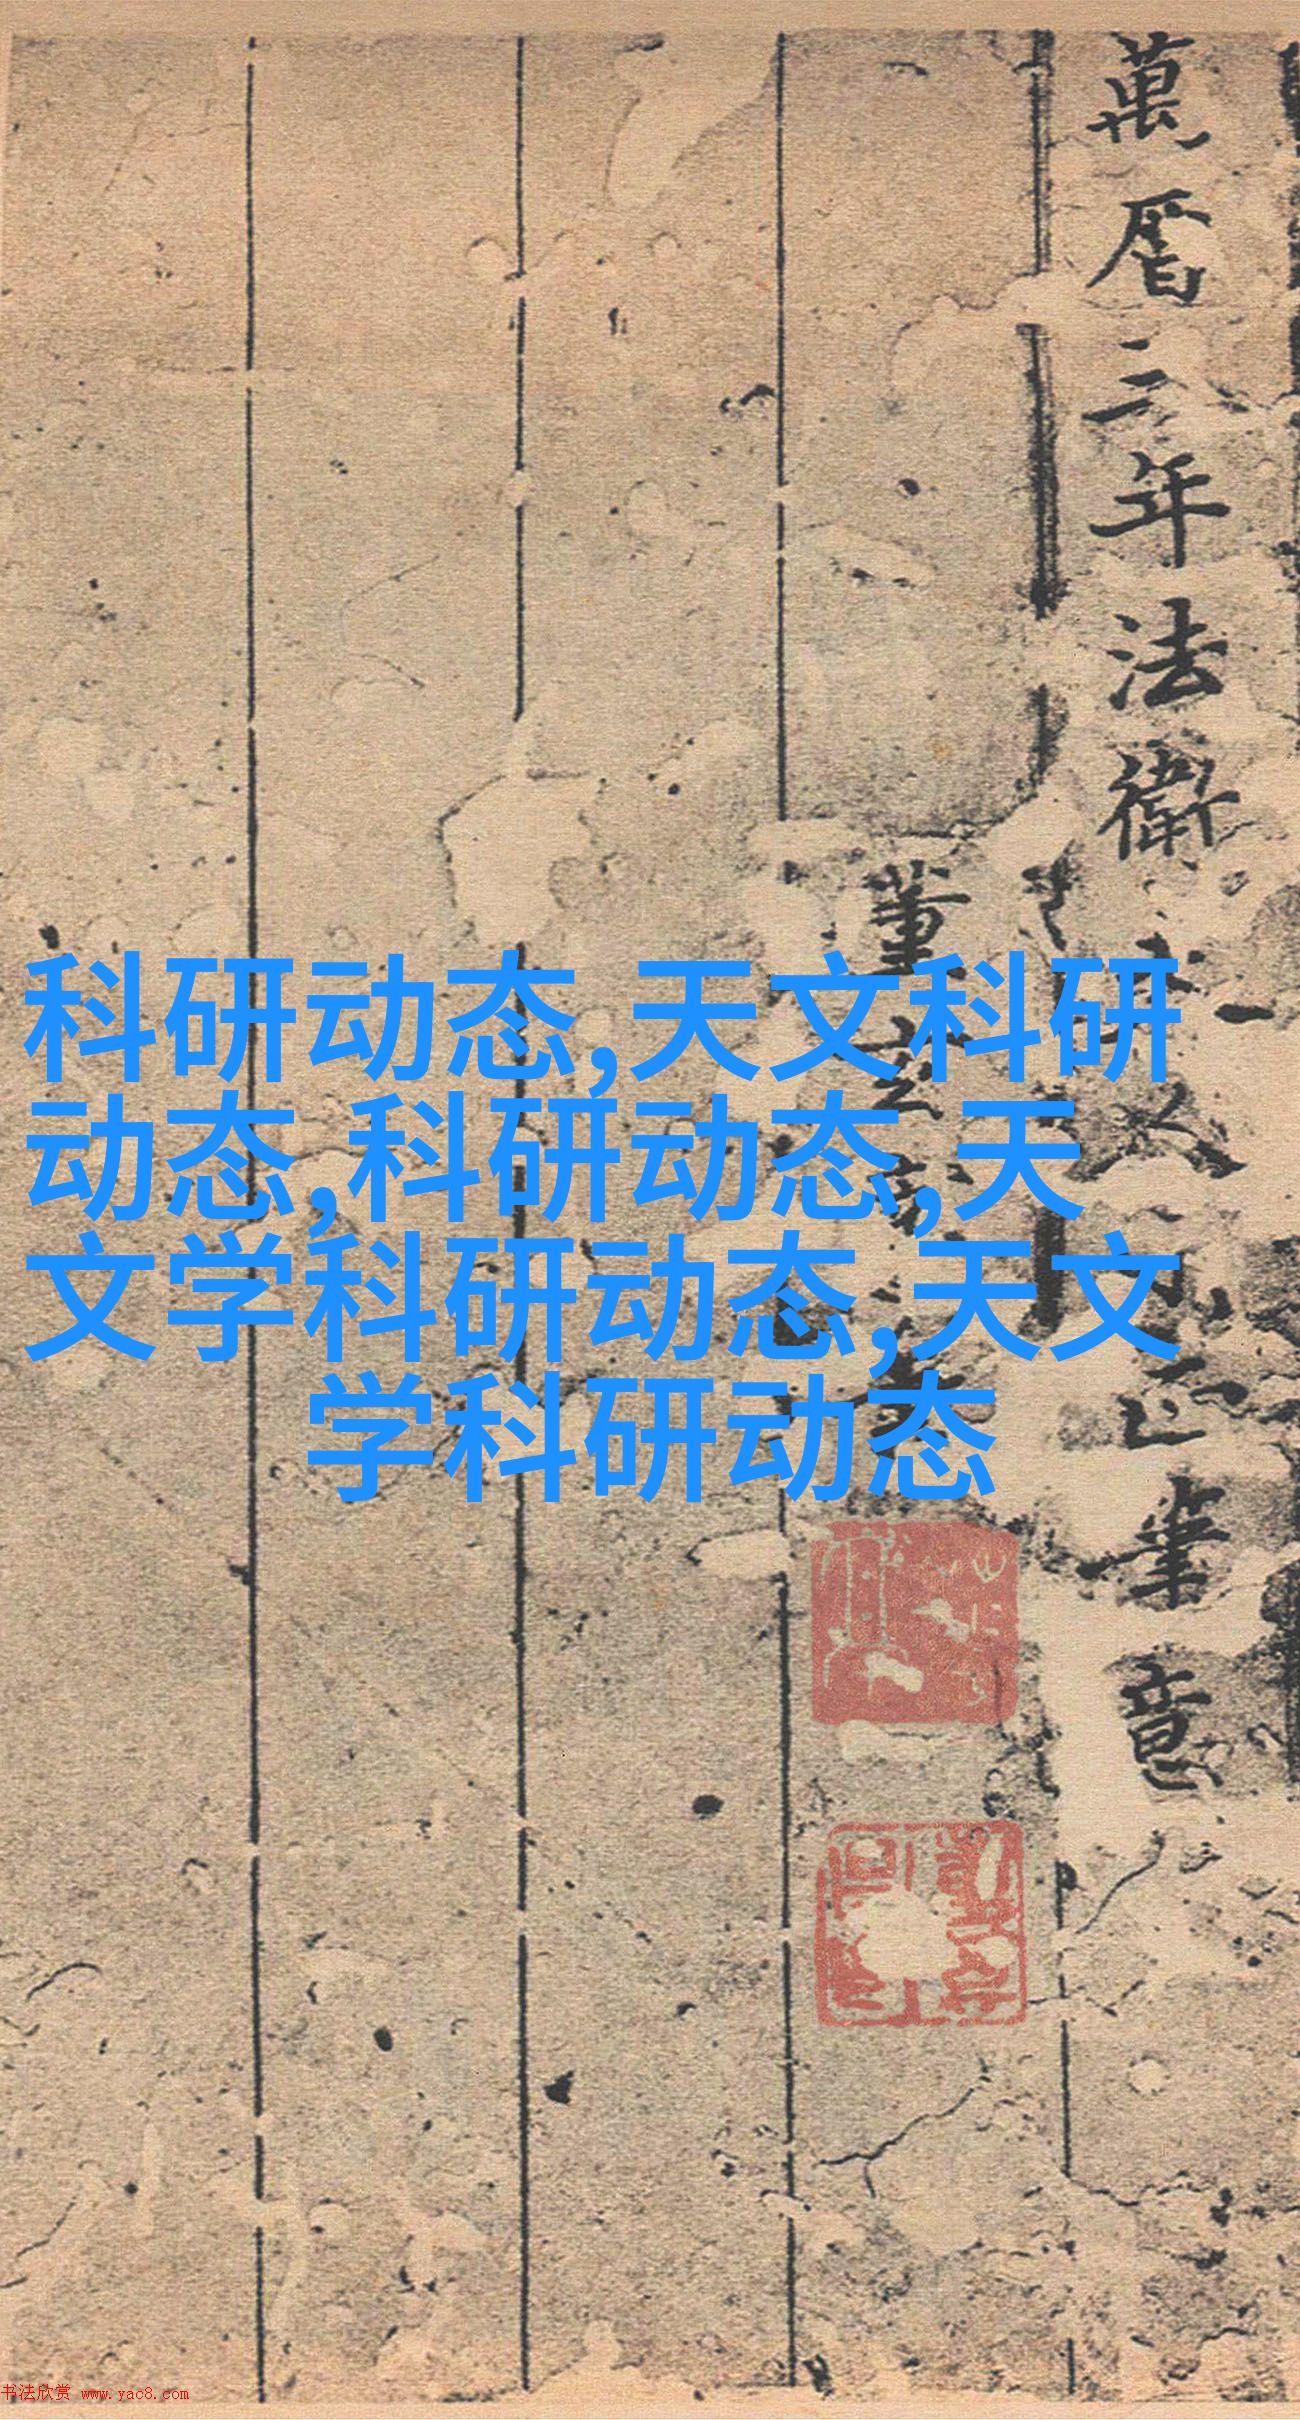 萬曆三年法衛夫人
正筆意
董
科研动态,天文科研
动态,科研动态,天
文学科研动态,天文
学科研动态
书法欣赏 www.yac8.com